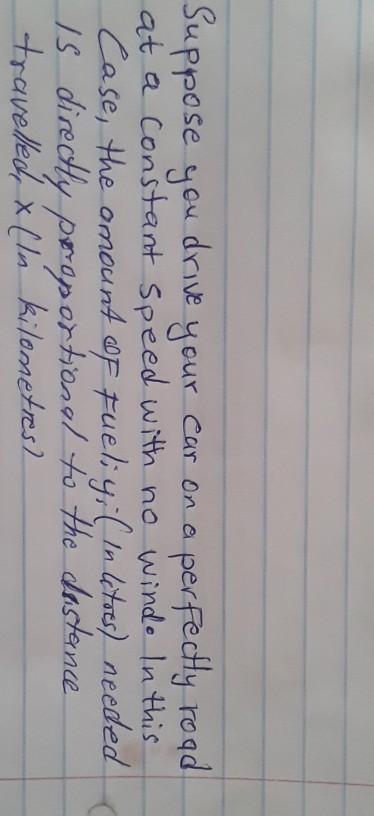 Suppose you drive your car on a perfectly road
at a constant speed with no wind. In this
Case, the amount of fuel, y, (in litres) needed
is directly proportional to the distance
travelled, x (in kilometres)